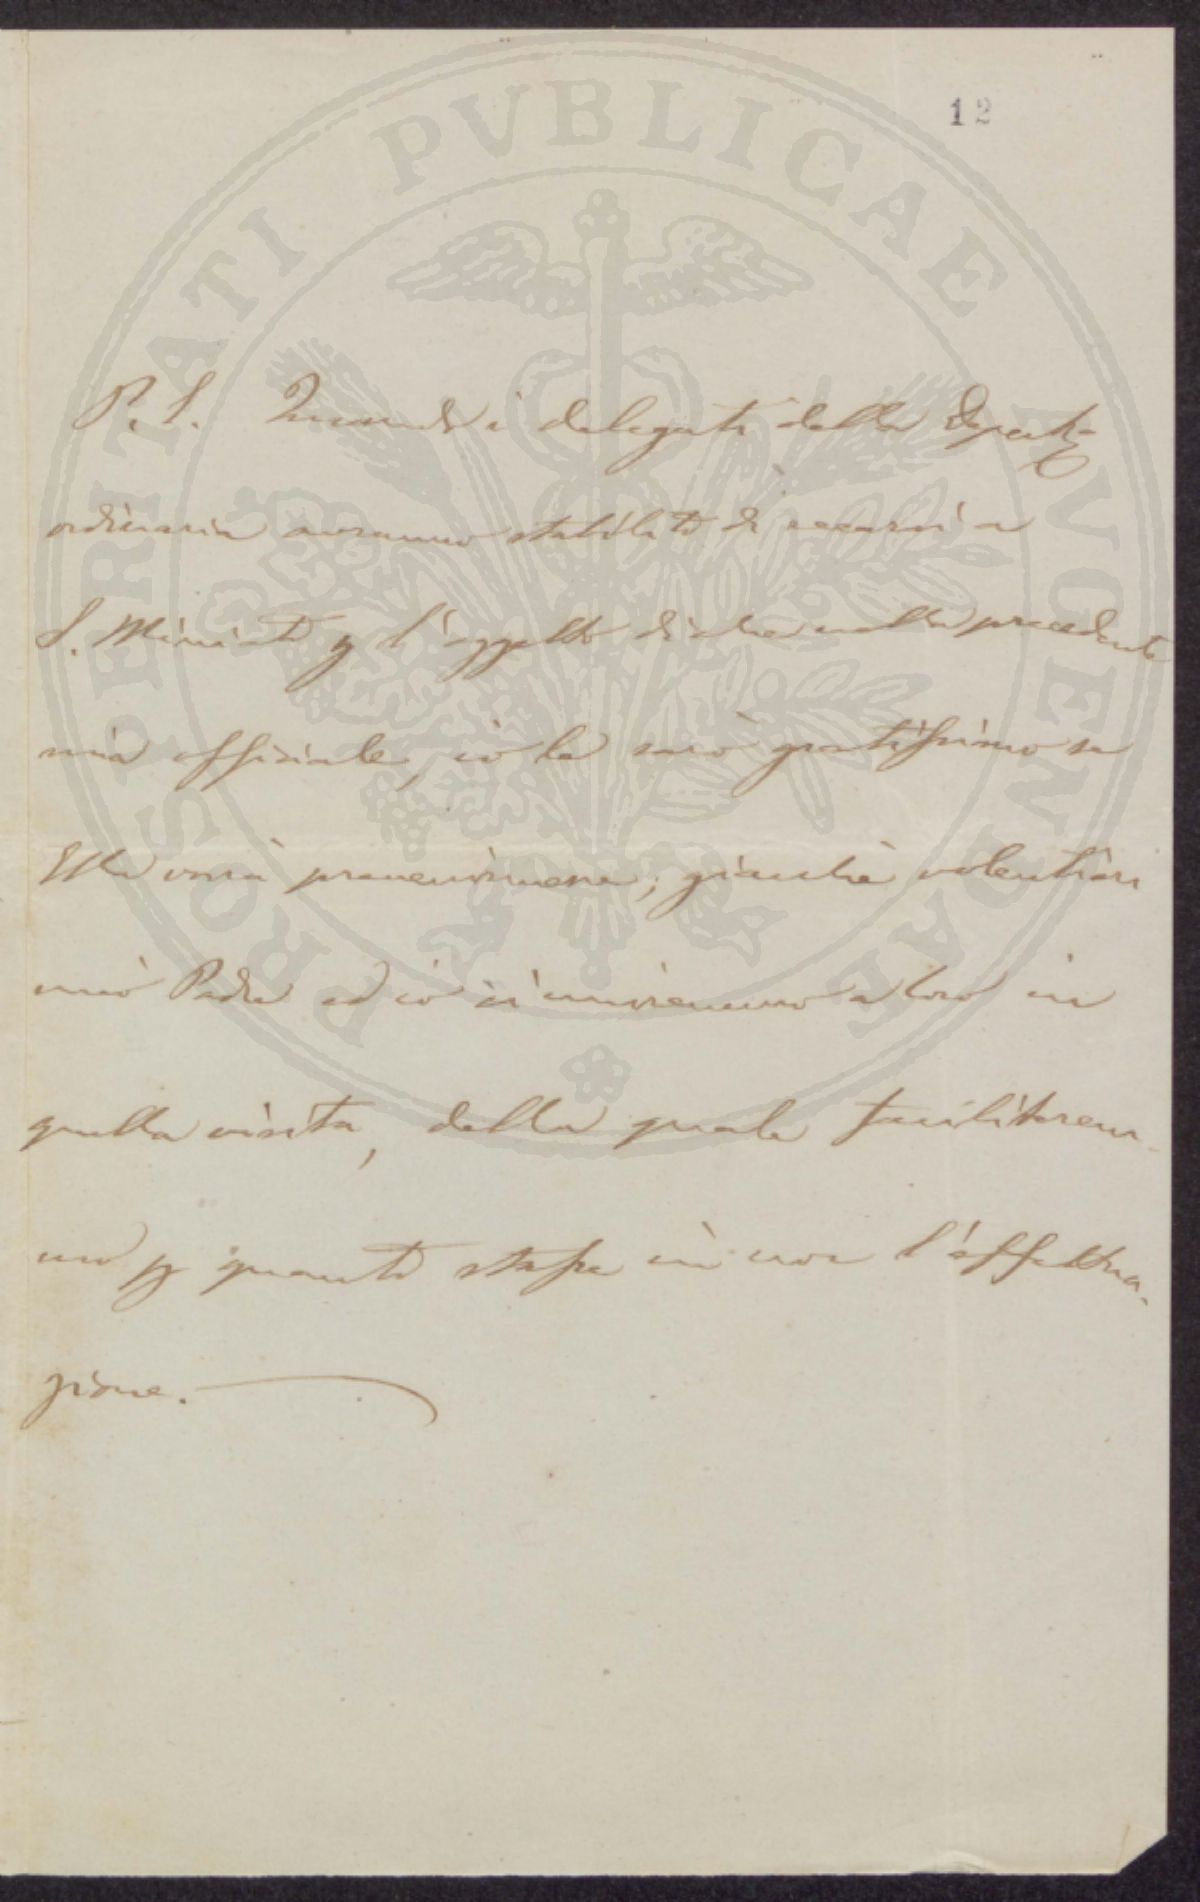 12
PROSPERITATI PVBLICAE AVGENDAE
P.S. Quando i delegati della Deputz.
ordinaria avranno stabilito di recarsi a
S. Miniato p l'oggetto di che nella precedente
mia officiale, io le sarò gratissimo se
Ella vorrà prevenirmene; giacchè volentieri
mio Padre ed io ci uniremmo a loro in
quella visita, della quale faciliterem-
mo p quanto stasse in noi l'effettua-
zione.